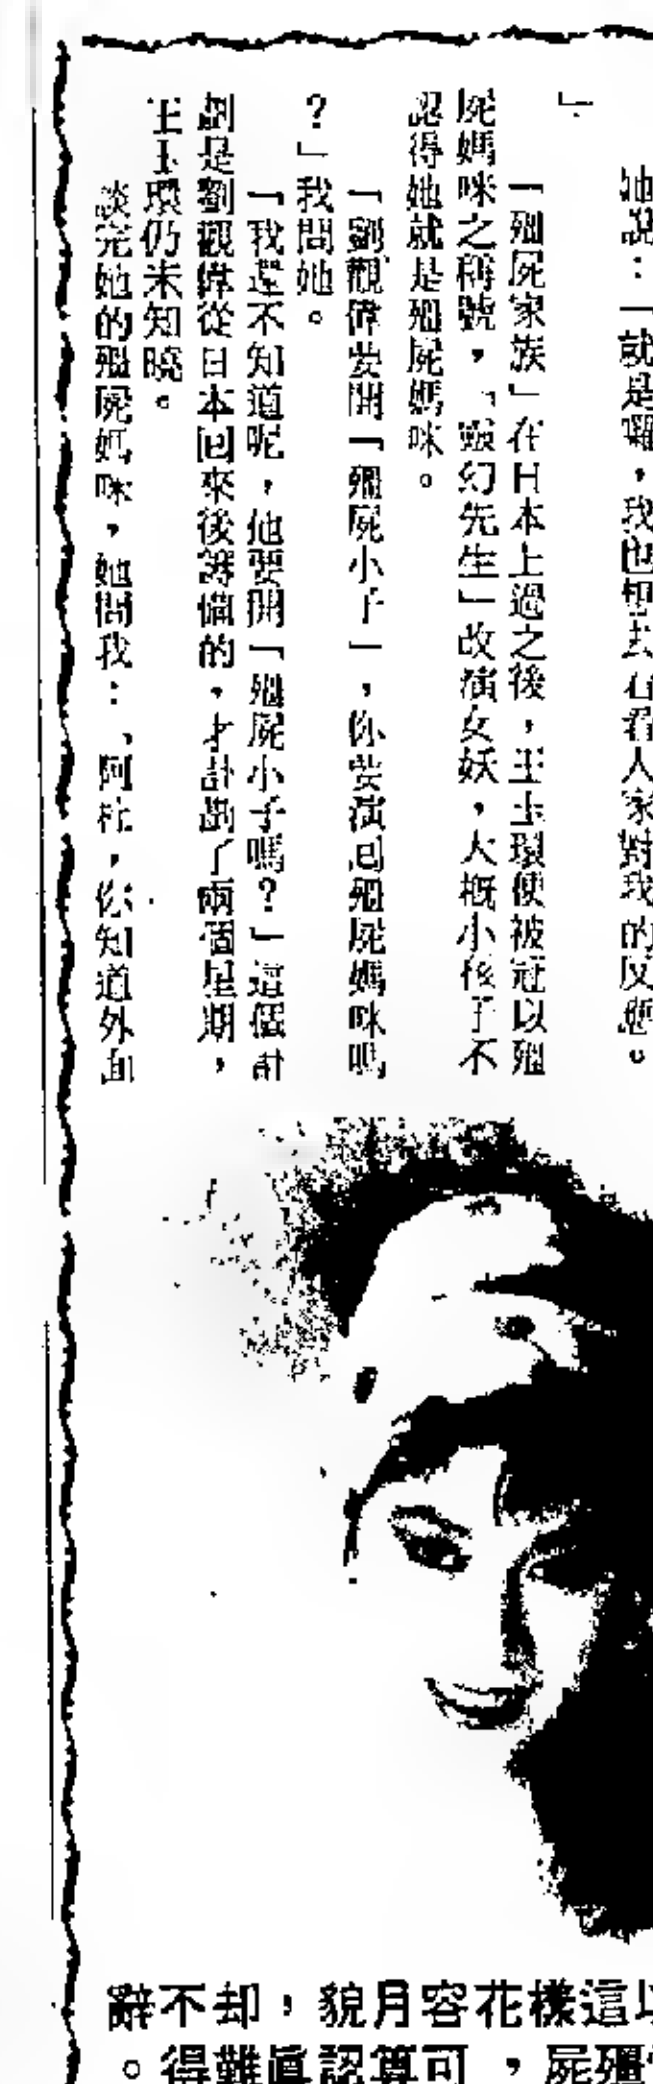 她說：「就是囉，我也想去看看人家對我的反應。
」
「殭屍家族」在日本上過之後，王玉環便被冠以殭
屍媽咪之稱號，「靈幻先生」改演女妖，大概小孩子不
認得她就是殭屍媽咪。
「劉觀偉要開「殭屍小子」，你要演回殭屍媽咪嗎
？」我問她。
「我還不知道呢，他要開「殭屍小子嗎？」這個計
劃是劉觀偉從日本回來後籌備的，才計劃了兩個星期，
王玉環仍未知曉。
談完她的殭屍媽咪，她問我：「阿杜，你知道外面
辭不却，貌月容花樣這以
。得難眞認算可，屍殭